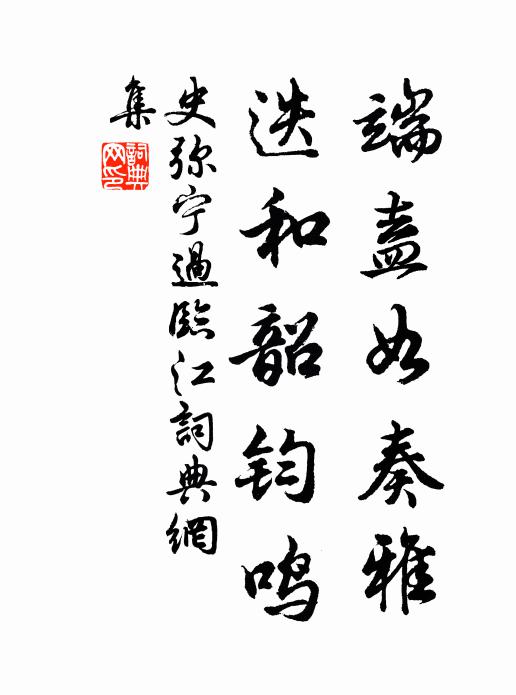 端盍如奏雅
迭和韶钧鸣
史弥宁過臨江詞典網
集
詞典網印